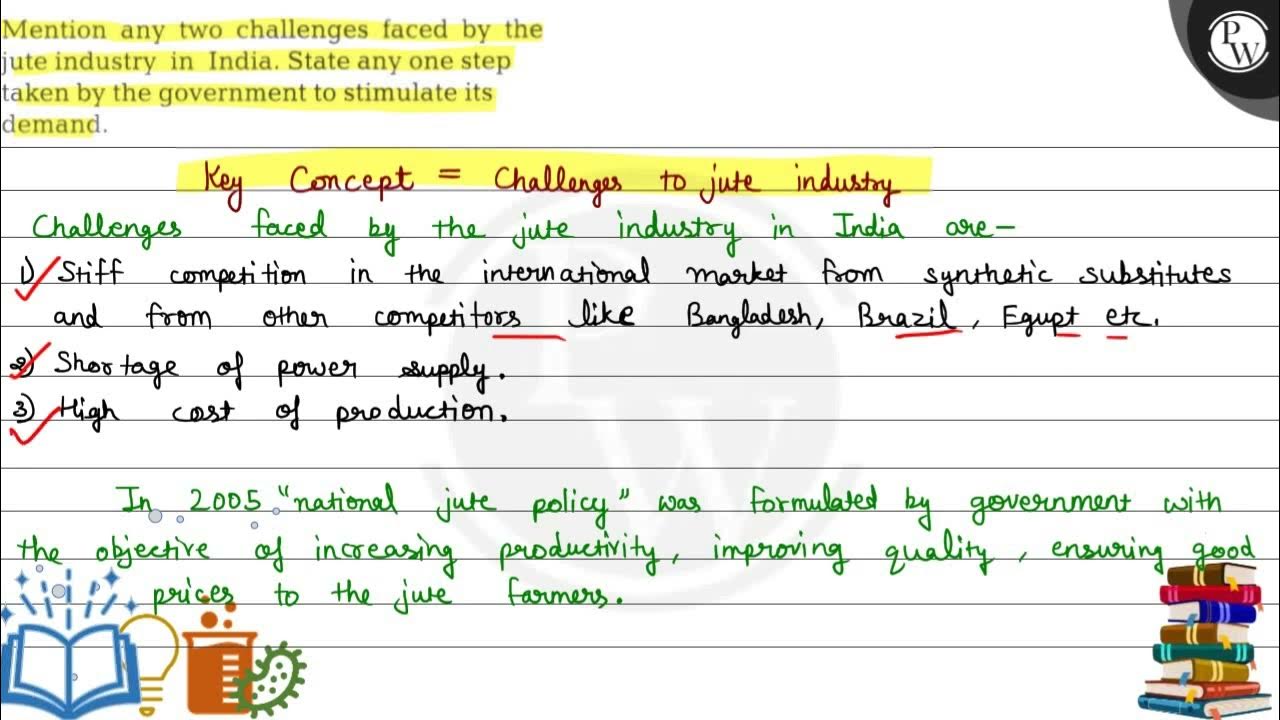 Mention any two challenges faced by the
jute industry in India. State any one step
taken by the government to stimulate its
demand.
PW
Key Concept = Challenges to jute industry
Challenges faced by the jute industry in India are-
1) Stiff competition in the international market from synthetic substitutes
and from other competitors like Bangladesh, Brazil, Egupt etc.
2) Shortage of power supply.
3) High cost of production.
In 2005 "national jute policy" was formulated by government with
the objective of increasing productivity, improving quality, ensuring good
prices to the jute farmers.